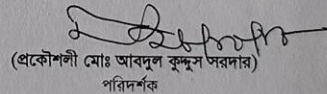 (প্রকৌশলী মোঃ আবদুল কুদ্দুস সরদার)
পরিদর্শক